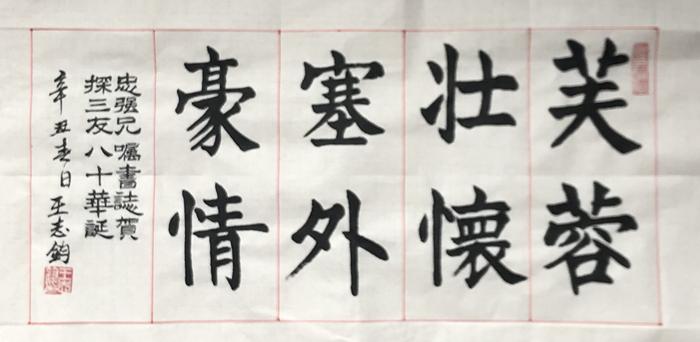 芙蓉
壯懷
塞外
豪情
忠强兄囑書誌賀
探三友八十華誕
辛丑春日王志鈞